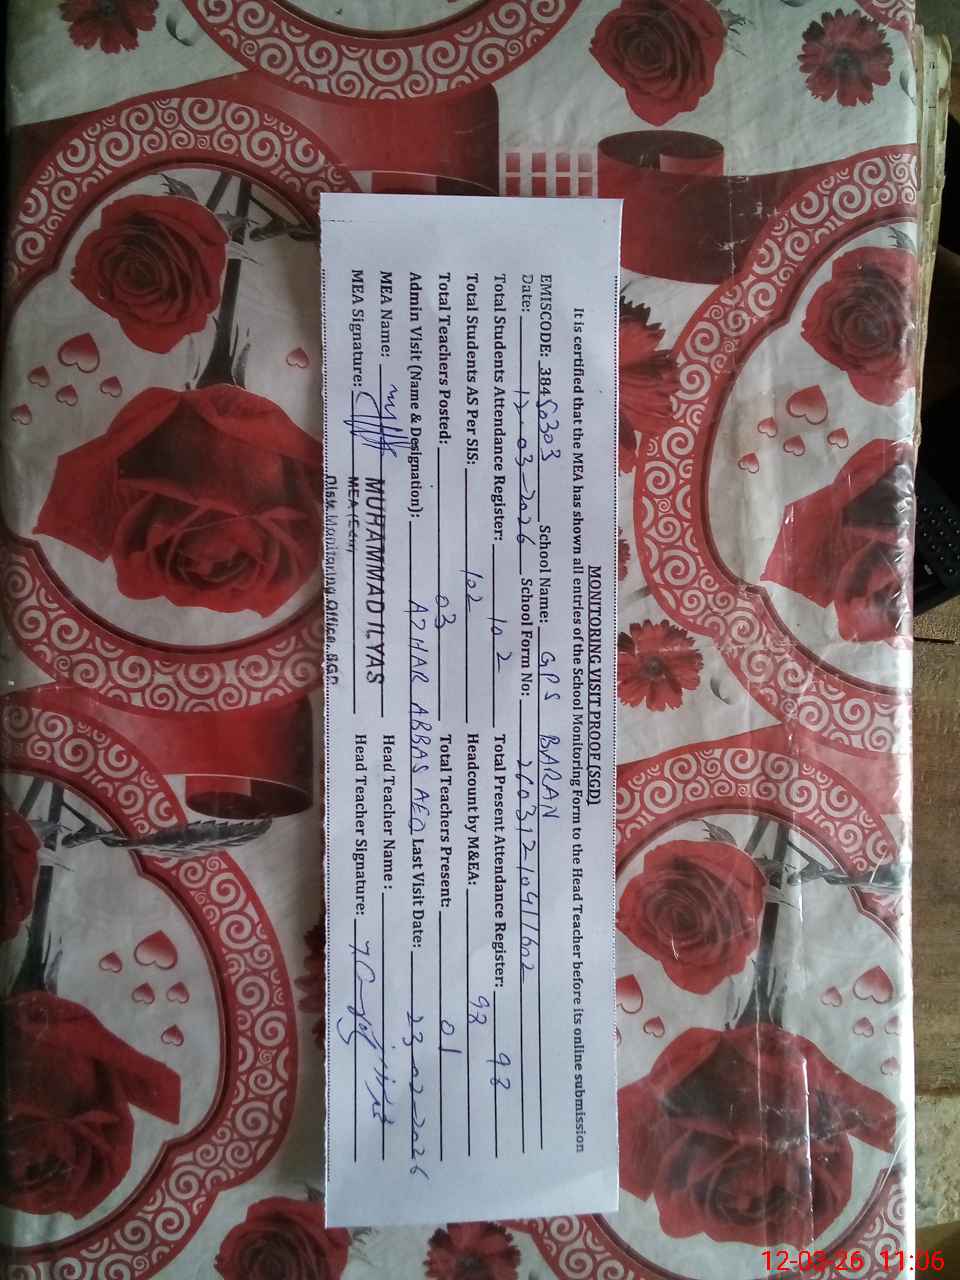 MONITORING VISIT PROOF (SGD)
It is certified that the MEA has shown all entries of the School Monitoring Form to the Head Teacher before its online submission
EMISCODE: 38450303 School Name: GPS BARAN
Date: 12-03-2026 School Form No: 26031210411602
Total Students Attendance Register: 102 Total Present Attendance Register: 98
Total Students AS Per SIS: 102 Headcount by M&EA: 98
Total Teachers Posted: 03 Total Teachers Present: 01
Admin Visit (Name & Designation): AZHAR ABBAS AEO Last Visit Date: 23-02-2026
MEA Name: MUHAMMAD ILYAS Head Teacher Name :
MEA Signature: MEA Head Teacher Signature:
Distt: Monitoring Office, SGD
12-03-26 11:06